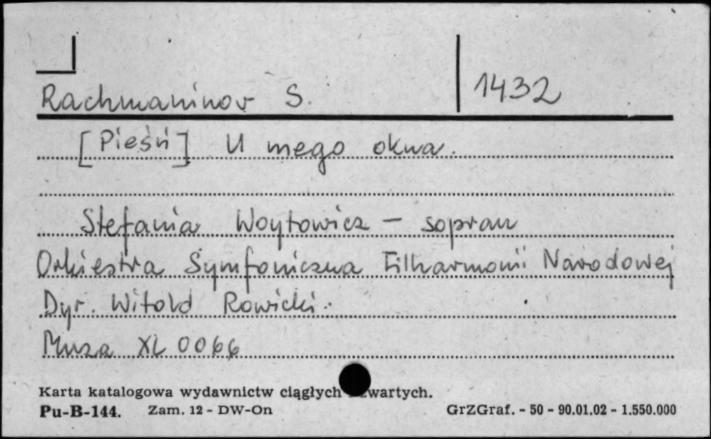 Rachmaninov S. 1432
[Pieśń] U mego okna.
Stefania Woytowicz - sopran
Orkiestra Symfoniczna Filharmonii Narodowej
Dyr. Witold Rowicki.
Muza XL 0066
Karta katalogowa wydawnictw ciągłych zwartych.
Pu-B-144. Zam. 12 - DW-On GrZGraf. - 50 - 90.01.02 - 1.550.000